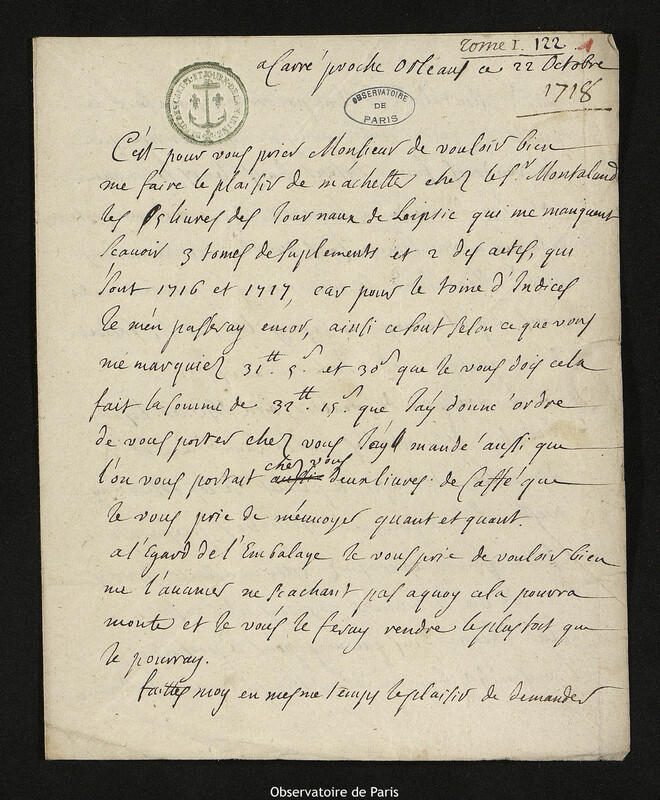 Tome I. 122. 1
a Carré proche Orléans ce 22 Octobre
1718
OBSERVATOIRE
DE
PARIS
C'est pour vous prier Monsieur de vouloir bien
me faire le plaisir de m'achetter chez le Sr. Montaland
les 5 livres des Journaux de Leipsic qui me manquent
scavoir 3 tomes de suplements et 2 des actes, qui
sont 1716 et 1717, car pour le tome d'Indices
Je m'en passeray encor, ainsi ce sont selon ce que vous
me marquiez 31tt. 5s. et 30s que Je vous dois cela
fait la somme de 32tt. 15s. que J'ay donné ordre
de vous porter chez vous J'ay mandé aussi que
l'on vous portast chez vous deux livres de Caffé que
Je vous prie de m'envoyer quant et quant.
a l'Egard de l'Embalage Je vous prie de vouloir bien
me l'avancer ne scachant pas a quoy cela pourra
monter et Je vous le feray rendre le plustost que
Je pourray.
faittes moy en mesme temps le plaisir de demander
Observatoire de Paris